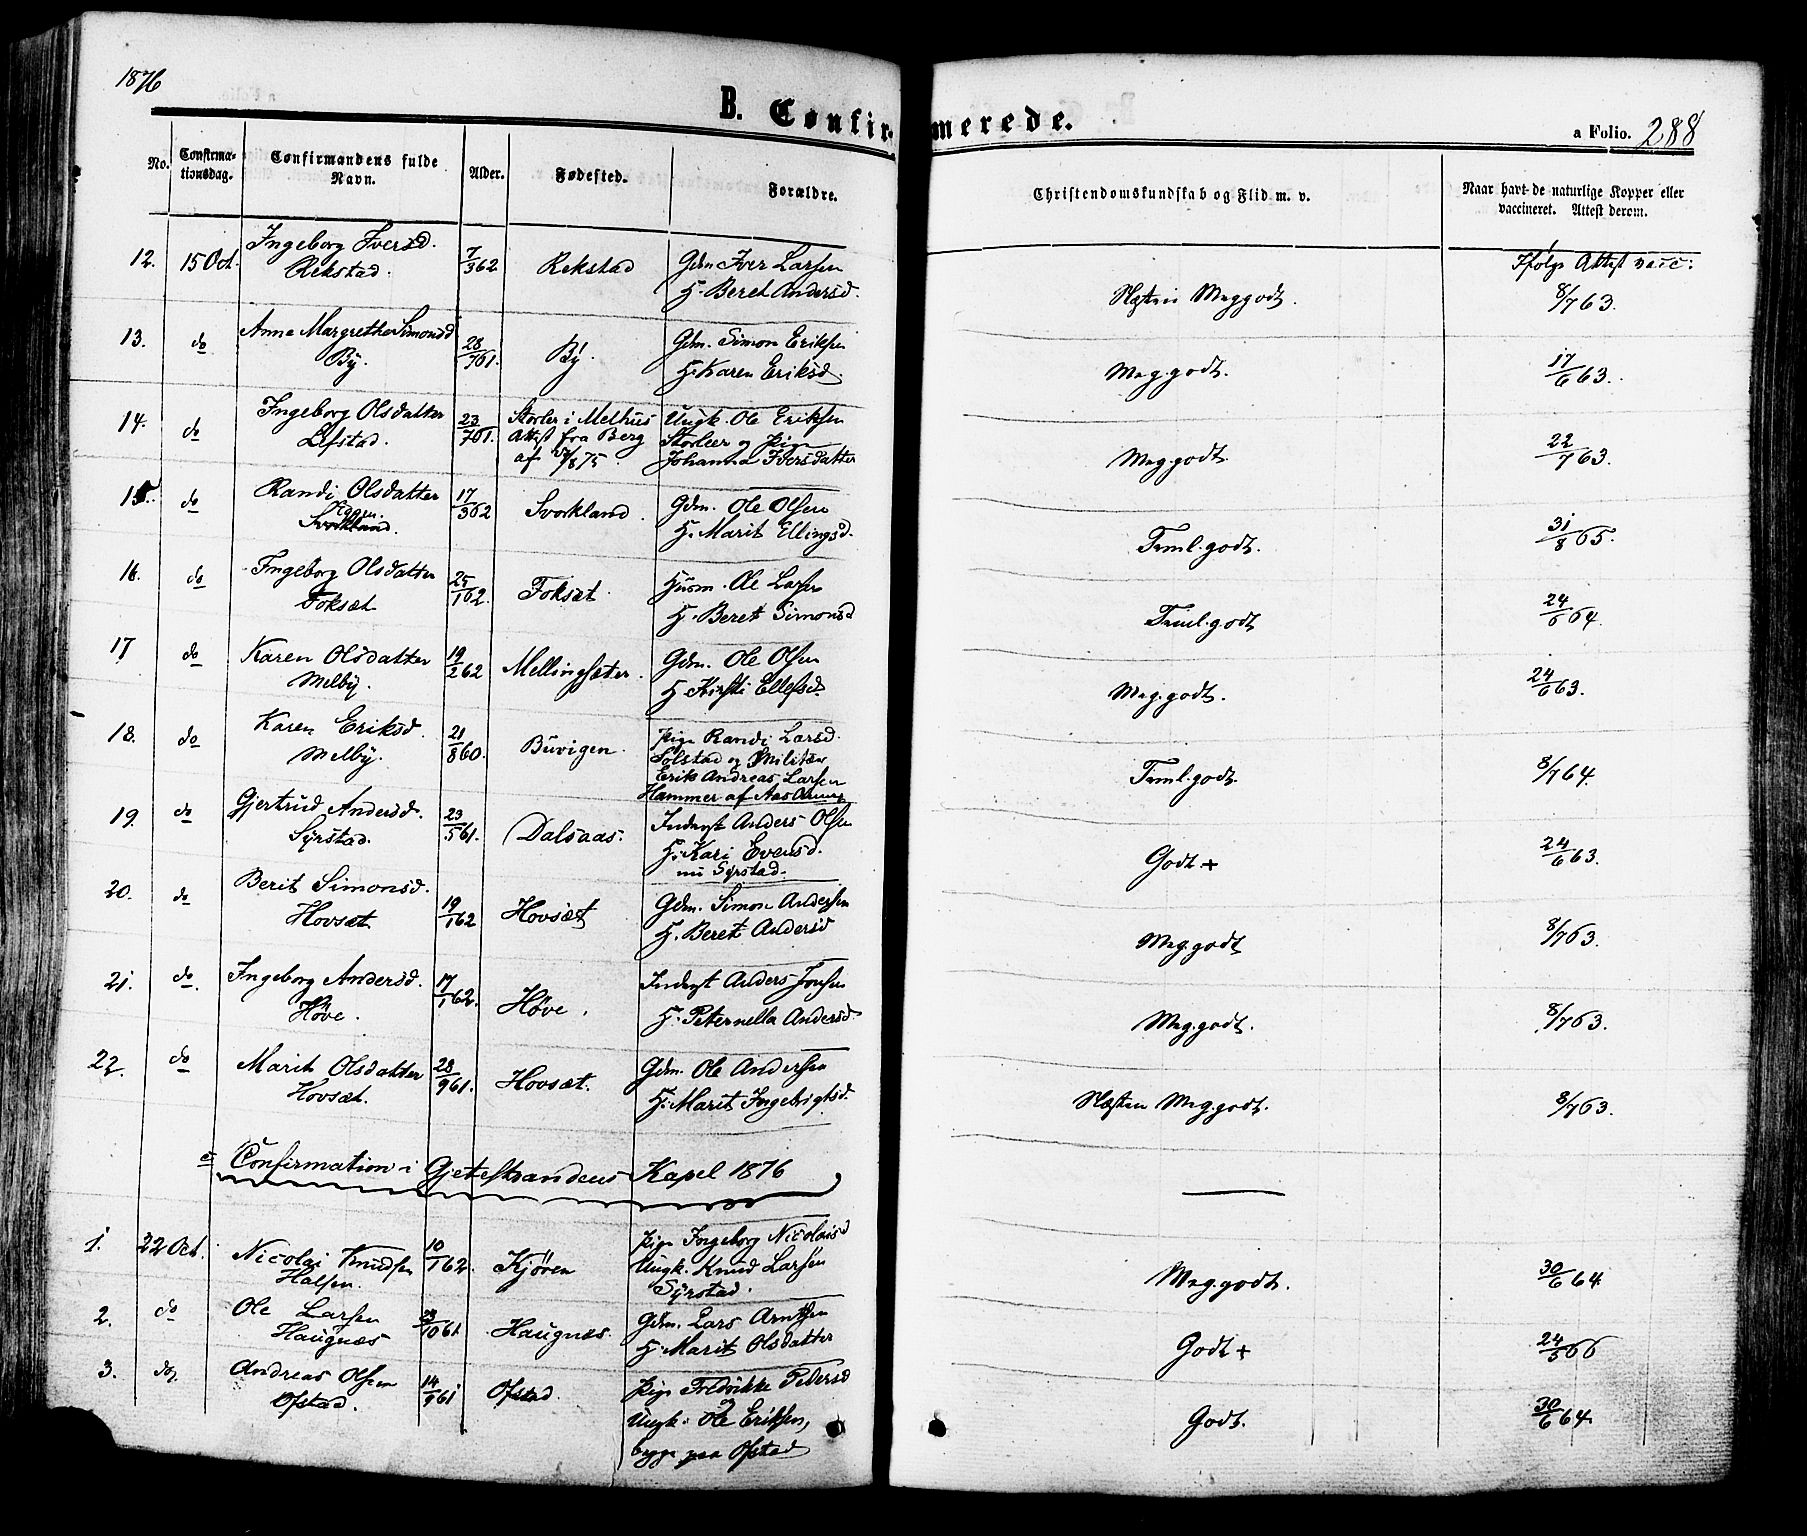 1876
B. Confirmerede.
a Folio. 288
No.
Confirmationsdag.
Confirmandens fulde Navn.
Alder.
Fødested.
Forældre.
Christendomskundskab og Flid m. v.
Naar havt de naturlige Kopper eller
vaccineret. Attest derom.
12. 15 Oct. Ingeborg Iversd. 7/3 62 Rekstad Gdm Iver Larsen Ifølge Attest vacc:
Rekstad. H. Beret Andersd. Næsten Meg godt. 8/7 63.
13. do Anne Margrethe Simonsd 28/7 61. By. Gdm. Simon Eriksen
By. H. Karen Eriksd. Meg. godt. 17/6 63.
14. do Ingeborg Olsdatter 23/7 61. Storler i Melhus Ungk. Ole Eriksen
Ofstad. Attest fra Berg Storleer og Pige
af /8 75. Johanna Iversdatter Meg. godt. 22/7 63.
15. do Randi Olsdatter 17/3 62 Svorkland. Gdm. Ole Olsen
Svorkland. H. Marit Ellingsd. Teml. godt. 31/8 65.
16. do Ingeborg Olsdatter 25/1 62. Foksæt. Husm. Ole Larsen
Foksæt H. Beret Simonsd Teml. godt 24/6 64.
17 do Karen Olsdatter 19/2 62 Mellingsæter. Gdm. Ole Olsen
Melby. H. Kirsti Ellefsd. Meg. godt. 24/6 63.
18. do Karen Eriksd. 21/8 60. Buvigen. Pige Randi Larsd.
Melby. Solstad og Militær
Erik Andreas Larsen
Hammer af Aas Teml. godt. 8/7 64.
19. do Gjertrud Andersd. 23/5 61. Dalsaas. Inderst Anders Olsen
Syrstad. H. Kari Evensd.
nu Syrstad. Godt + 24/6 63.
20. do Berit Simonsd. 19/1 62 Hovsæt Gdm. Simon Andersen
Hovsæt H. Beret Andersd Meg. godt 8/7 63.
21. do. Ingeborg Andersd. 17/1 62. Høve. Inderst Anders Jonsen
Høve. H. Peternella Andersd. Meg. godt. 8/7 63.
22. do Marit Olsdatter 28/9 61. Hovsæt. Gdm. Ole Andersen
Hovsæt. H. Marit Ingebrigtsd. Næsten Meg. godt. 8/7 63.
Confirmation i Gjetestrandens Kapel 1876
1. 22 Oct. Nicolai Knudsen 10/1 62. Kjøren Pige Ingeborg Nicolaisd
Halsen. Ungk. Knud Larsen
Syrstad. Meg. godt. 30/6 64.
2. do Ole Larsen /10 61. Haugnæs. Gdm. Lars Arntsen
Haugnæs H. Marit Olsdatter Godt + 24/5 66
3. do Andreas Olsen 14/9 61 Ofstad. Pige Fredrikke Petersd
Ofstad. Ungk. Ole Eriksen,
begge paa Ofstad Godt. 30/6 64.